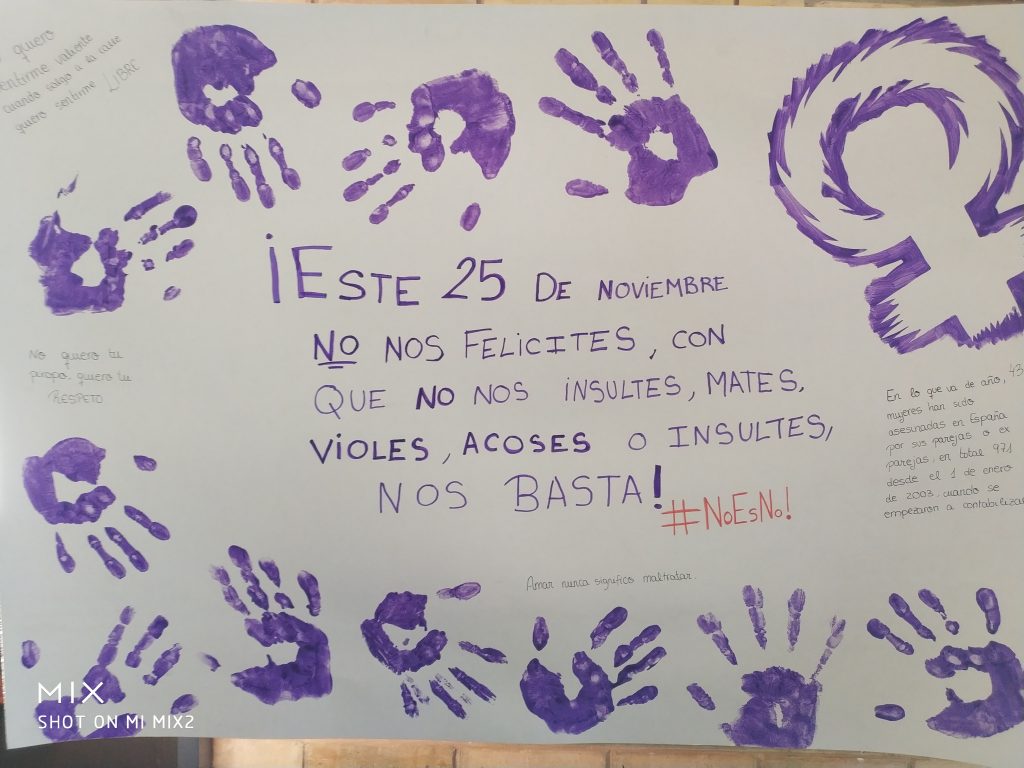 quiero
sentirme valiente
cuando salgo a la calle
quiero sentirme LIBRE
¡ESTE 25 DE NOVIEMBRE
NO NOS FELICITES, CON
QUE NO NOS INSULTES, MATES,
VIOLES, ACOSES O INSULTES,
NOS BASTA!
#NoEsNo!
No quiero tu
piropo, quiero tu
RESPETO
En lo que va de año, 43
mujeres han sido
asesinadas en España
por sus parejas o ex
parejas, en total 971
desde el 1 de enero
de 2003, cuando se
empezaron a contabilizar
Amar nunca significo maltratar.
MIX
SHOT ON MI MIX2